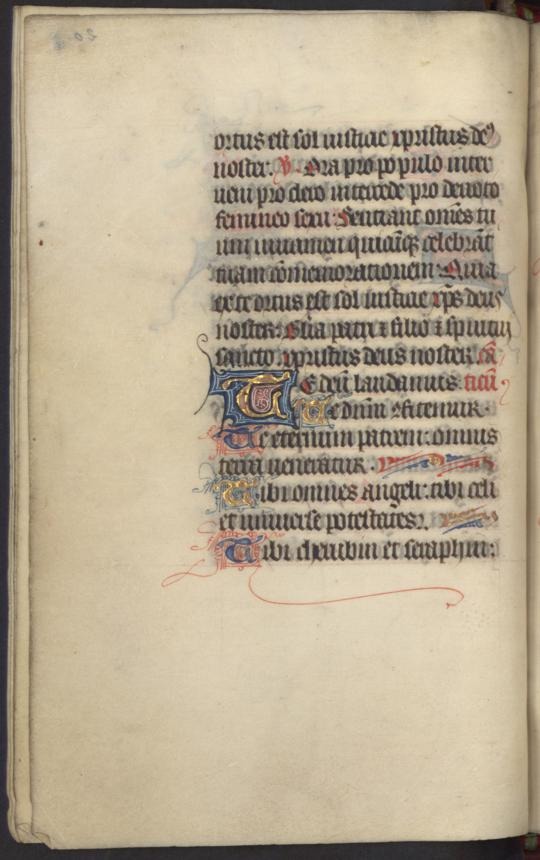 ortus est sol iusticie xpristus de⁹
noster. ℣. Ora pro populo inter
ueni pro clero intercede pro deuoto
femineo sexu: Sentiant om̄es tu
um iuuamen quicūq̨ celebrāt
tuam cōmemorationem. Quia
ex te ortus est sol iusticie xp̄s deus
noster. Gl̄ia patri ⁊ filio ⁊ spiritui
sancto. xpristus deus noster. cā
TE deū laudamus: ticū
te dn̄m ꝯfitemur.
Te eternum patrem: omnis
terra ueneratur.
Tibi omnes angeli: tibi celi
et uniuerse potestates.
Tibi cherubin et seraphin: